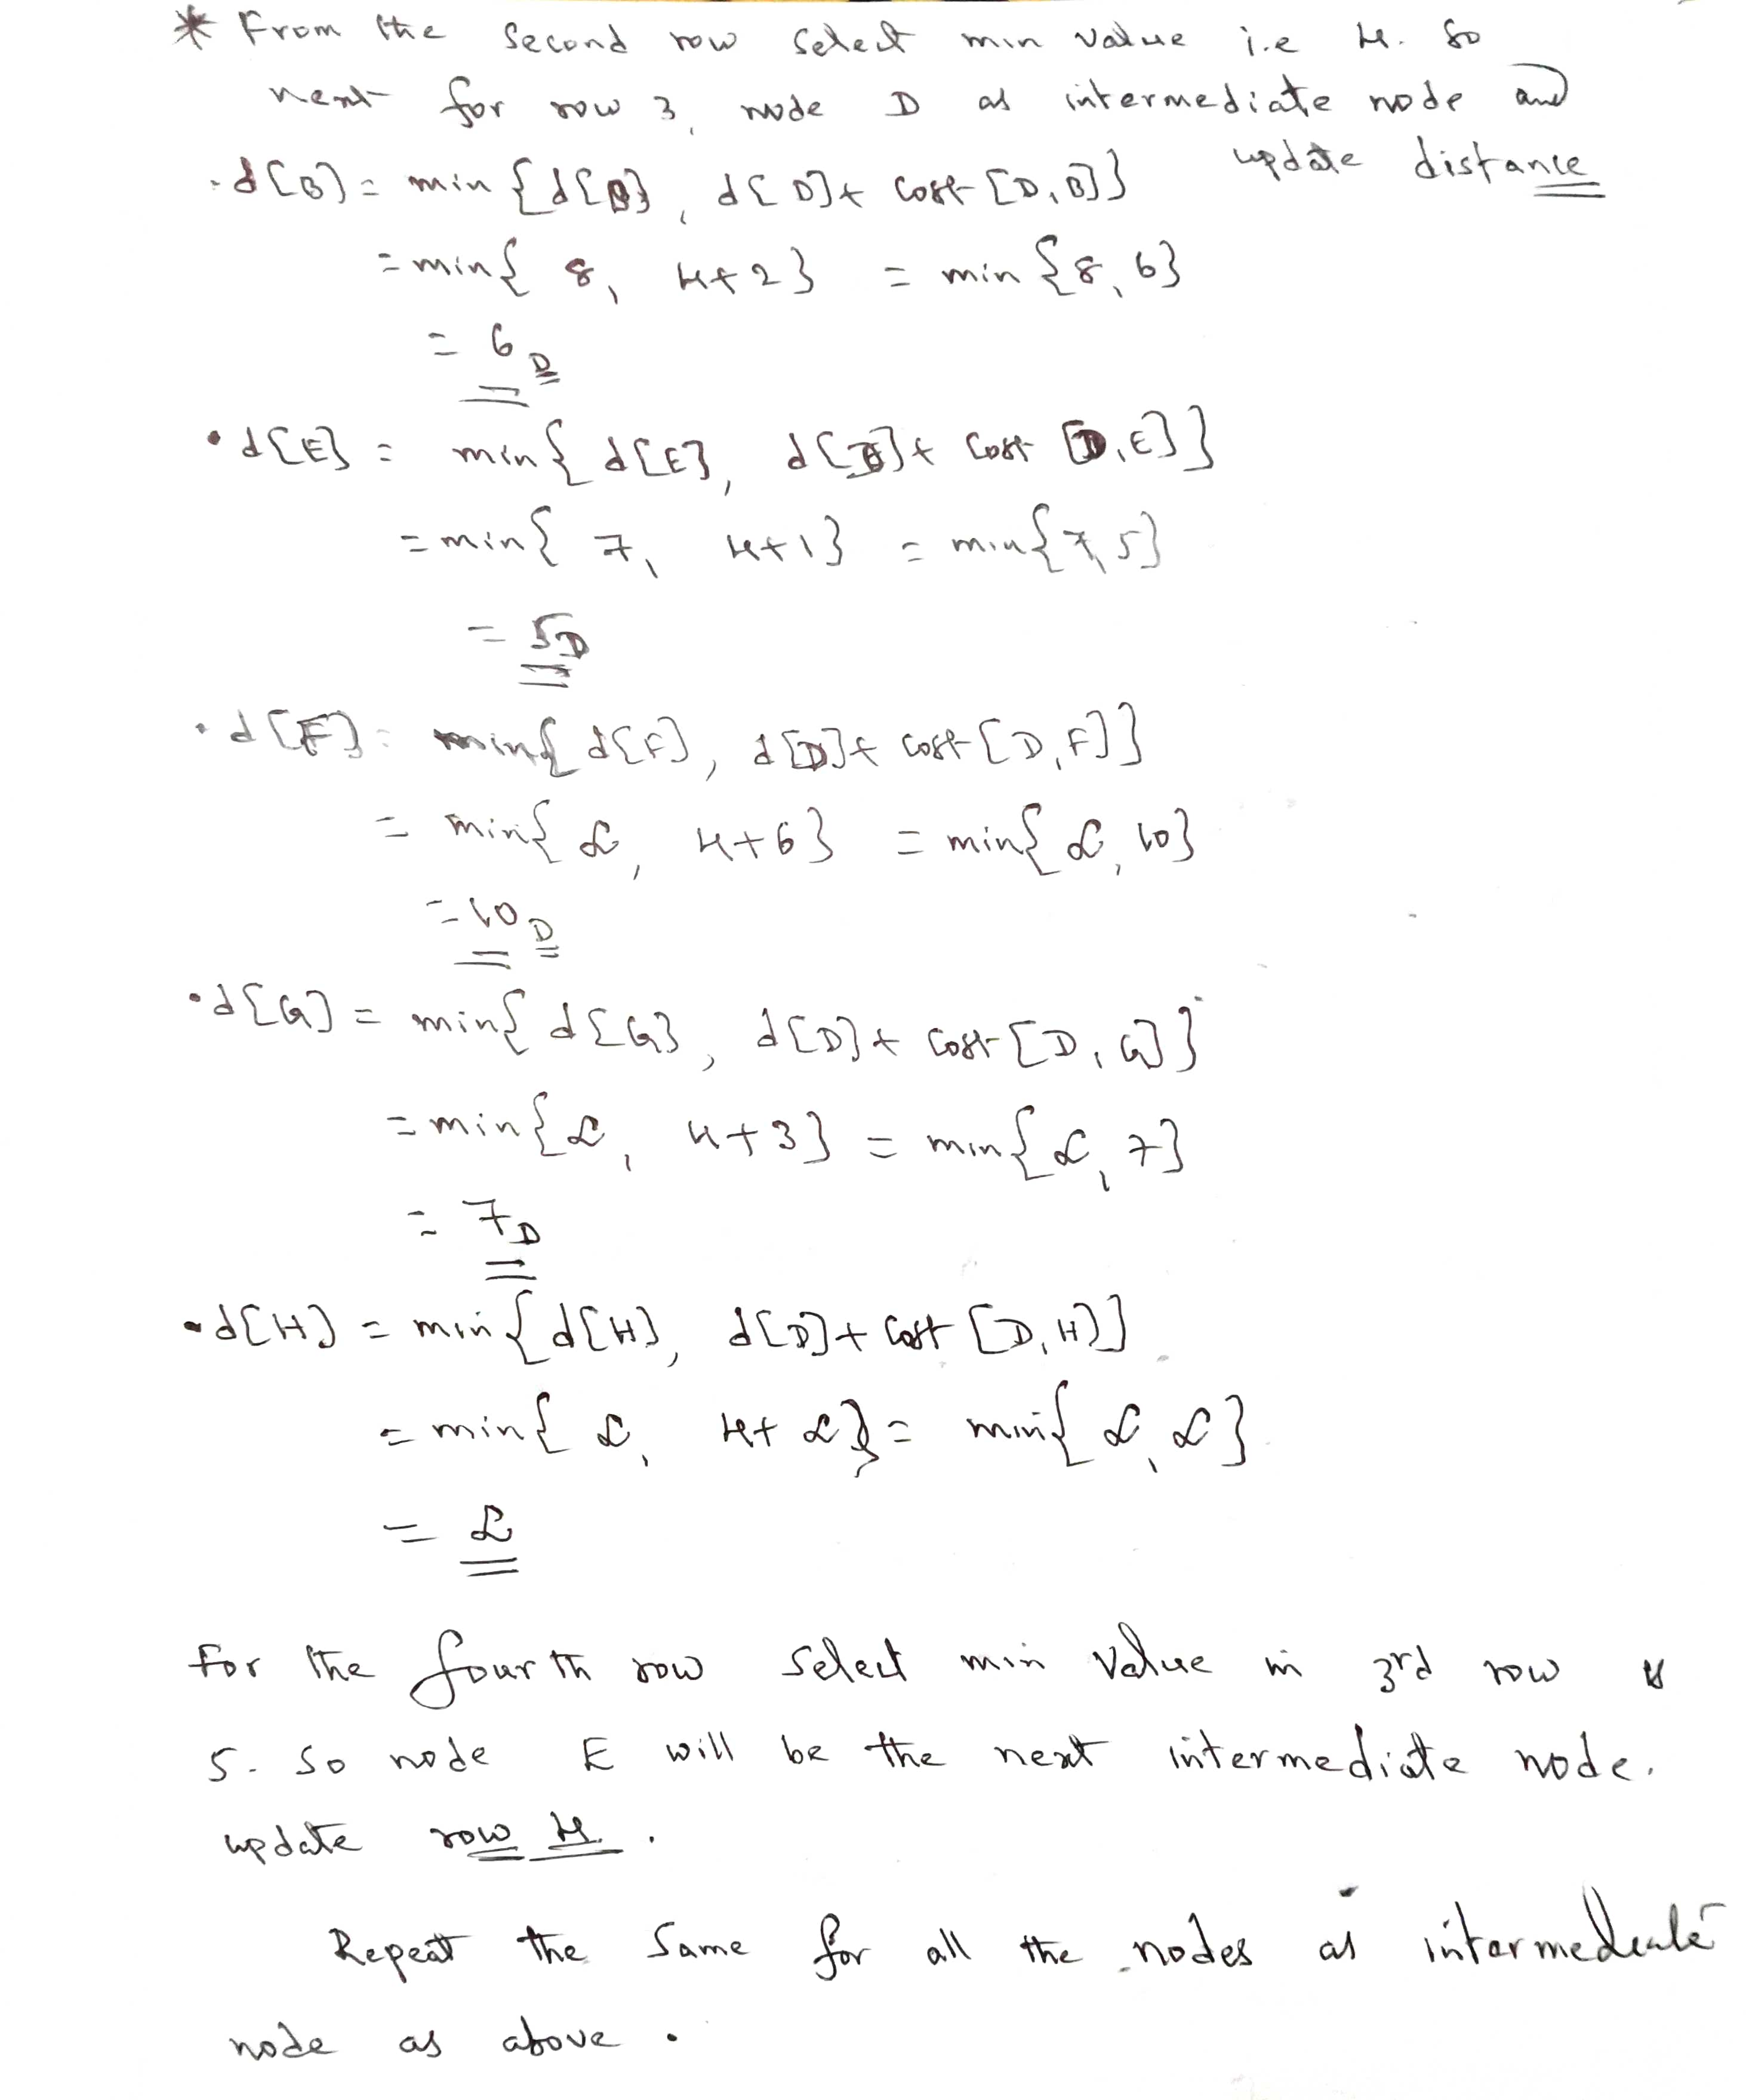 * From the second row select min value i.e 4. So
next for row 3, node D as intermediate node and
update distance
. d[B] = min {d[B], d[D]+ cost [D,B]}
= min{ 8, 4+2} = min {8, 6}
= 6 D
• d[E] = min{ d[E], d[D]+ cost [D,E]}
= min{ 7, 4+1} = min{7,5}
= 5D
• d[F] = min{ d[F], d[D]+ cost [D,F]}
= min{ ∞, 4+6} = min{ ∞, 10}
= 10 D
• d[G] = min{ d[G], d[D]+ cost [D, G]}
= min{∞, 4+3} = min{∞, 7}
= 7D
• d[H] = min{d[H], d[D]+ cost [D,H]}
= min{ ∞, 4+ ∞} = min{ ∞, ∞}
= ∞
For the fourth row select min value in 3rd row is
5. So node E will be the next intermediate node.
update row 4.
Repeat the same for all the nodes as intermediate
node as above.